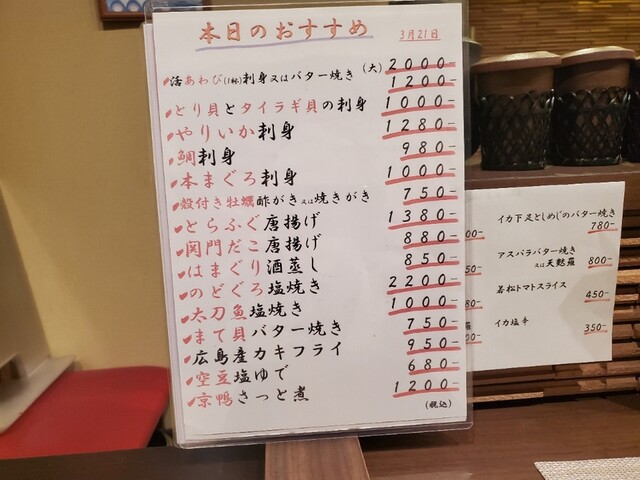 本日のおすすめ 3月21日
(大) 2000-
活あわび(1杯)刺身又はバター焼き 1200-
とり貝とタイラギ貝の刺身 1000-
やりいか刺身 1280-
鯛刺身 980-
本まぐろ刺身 1000-
殻付き牡蠣酢がき又は焼きがき 750-
とらふぐ唐揚げ 1380-
関門だこ唐揚げ 880-
はまぐり酒蒸し 850-
のどぐろ塩焼き 2200-
太刀魚塩焼き 1000-
まて貝バター焼き 750-
広島産カキフライ 950-
空豆塩ゆで 680-
京鴨さっと煮 1200-
(税込)
イカ下足としめじのバター焼き
780-
アスパラバター焼き
又は天麩羅 800-
若松トマトスライス
450-
イカ塩辛
350-